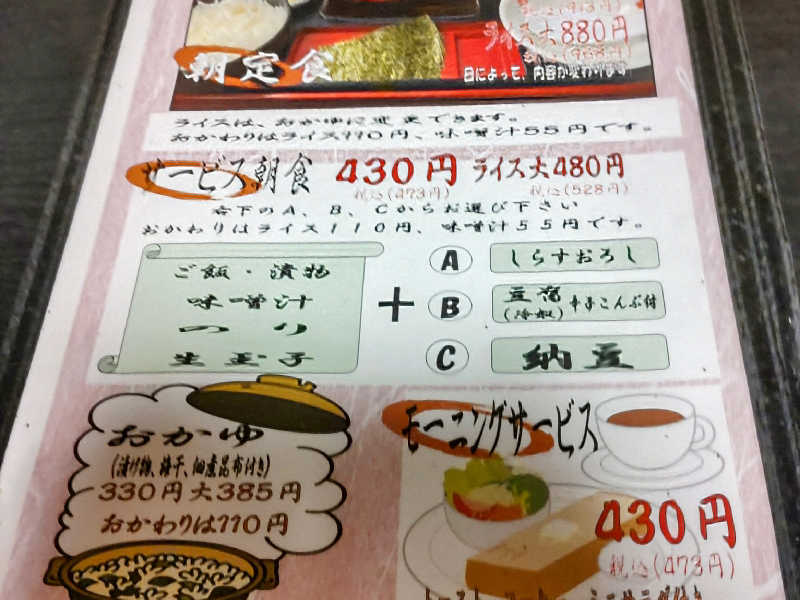 ライス大880円
税込(968円)
朝定食
日によって、内容が変わります
ライスは、おかゆに変更できます。
おかわりはライス110円、味噌汁55円です。
サービス朝食 430円 ライス大480円
税込(473円) 税込(528円)
右下のA、B、Cからお選び下さい
おかわりはライス110円、味噌汁55円です。
ご飯・漬物
味噌汁
のり
生玉子
+
A しらすおろし
B 豆腐(冷奴)辛子こんぶ付
C 納豆
おかゆ
(漬け物、梅干、佃煮昆布付き)
330円 大385円
おかわりは110円
モーニングサービス
430円
税込(473円)